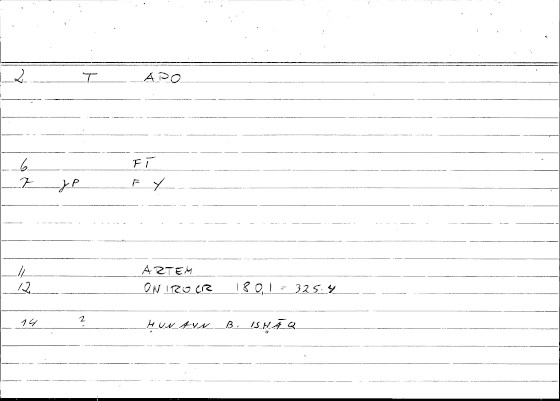 2 T APO
6 FT
7 γP F Y
11 ARTEM
12 ONIROCR 180,1 = 325.4
14 ? ḤUNAYN B. ISḤĀQ